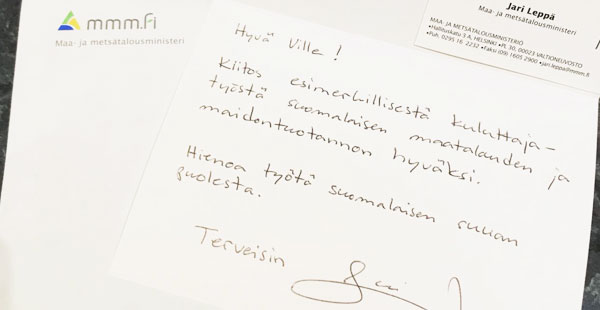 mmm.fi
Maa- ja metsätalousministeri
Jari Leppä
Maa- ja metsätalousministeri
MAA- JA METSÄTALOUSMINISTERIÖ
•Hallituskatu 3 A, HELSINKI •PL 30, 00023-VALTIONEUVOSTO
•Puh. 0295 16 2232 •Faksi (09) 1605 2900 •jari.leppa@mmm.fi
Hyvä Ville!
Kiitos esimerkillisestä kuluttaja-
työstä suomalaisen maatalouden ja
maidontuotannon hyväksi.
Hienoa työtä suomalaisen ruuan
puolesta.
Terveisin